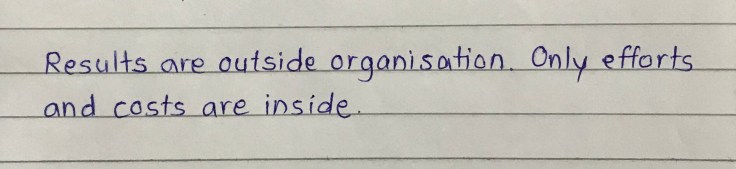 Results are outside organisation. Only efforts
and costs are inside.